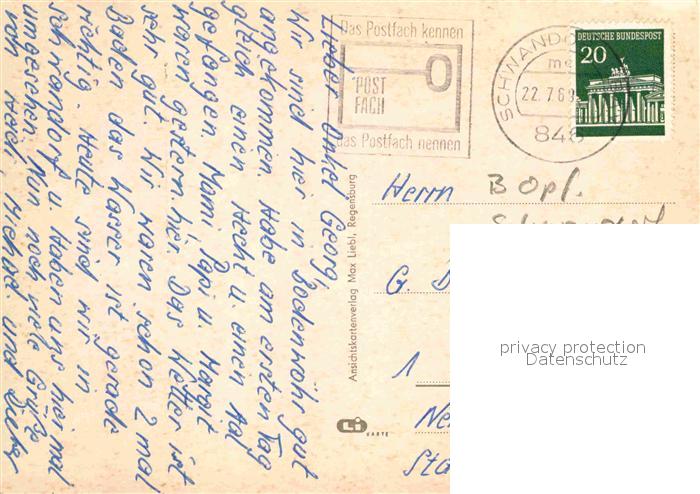 Lieber Onkel Georg,
Wir sind hier in Bodenwöhr gut
angekommen. Habe am ersten Tag
gleich einen Hecht u. einen Aal
gefangen. Mami, Papi u. Margit
waren gestern hier. Das Wetter ist
sehr gut. Wir waren schon 2 mal
Baden das Wasser ist gerade
richtig. Heute sind wir in
Schwandorf u. haben uns hei mal
umgesehen. Nun noch viele Grüße
von Heidi, und Dieter
Das Postfach kennen
POST
FACH
das Postfach nennen
SCHWANDO
22.7.69
846
DEUTSCHE BUNDESPOST
20
Herrn B Opf.
G. D
1
Ansichtskartenverlag Max Liebl, Regensburg
Li
KARTE
privacy protection
Datenschutz